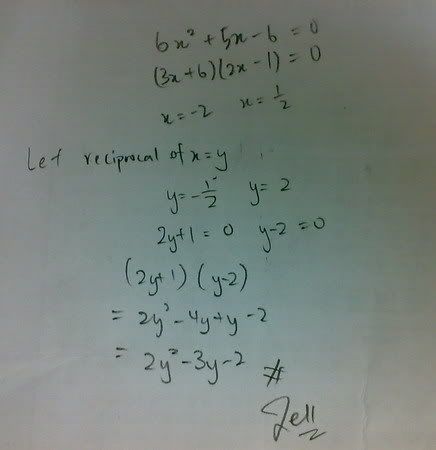 6x² + 5x - 6 = 0
(3x + 6)(2x - 1) = 0
x = -2 x = 1/2
Let reciprocal of x = y
y = -1/2 y = 2
2y+1 = 0 y-2 = 0
(2y+1) (y-2)
= 2y² - 4y + y - 2
= 2y² - 3y - 2 #
Jell